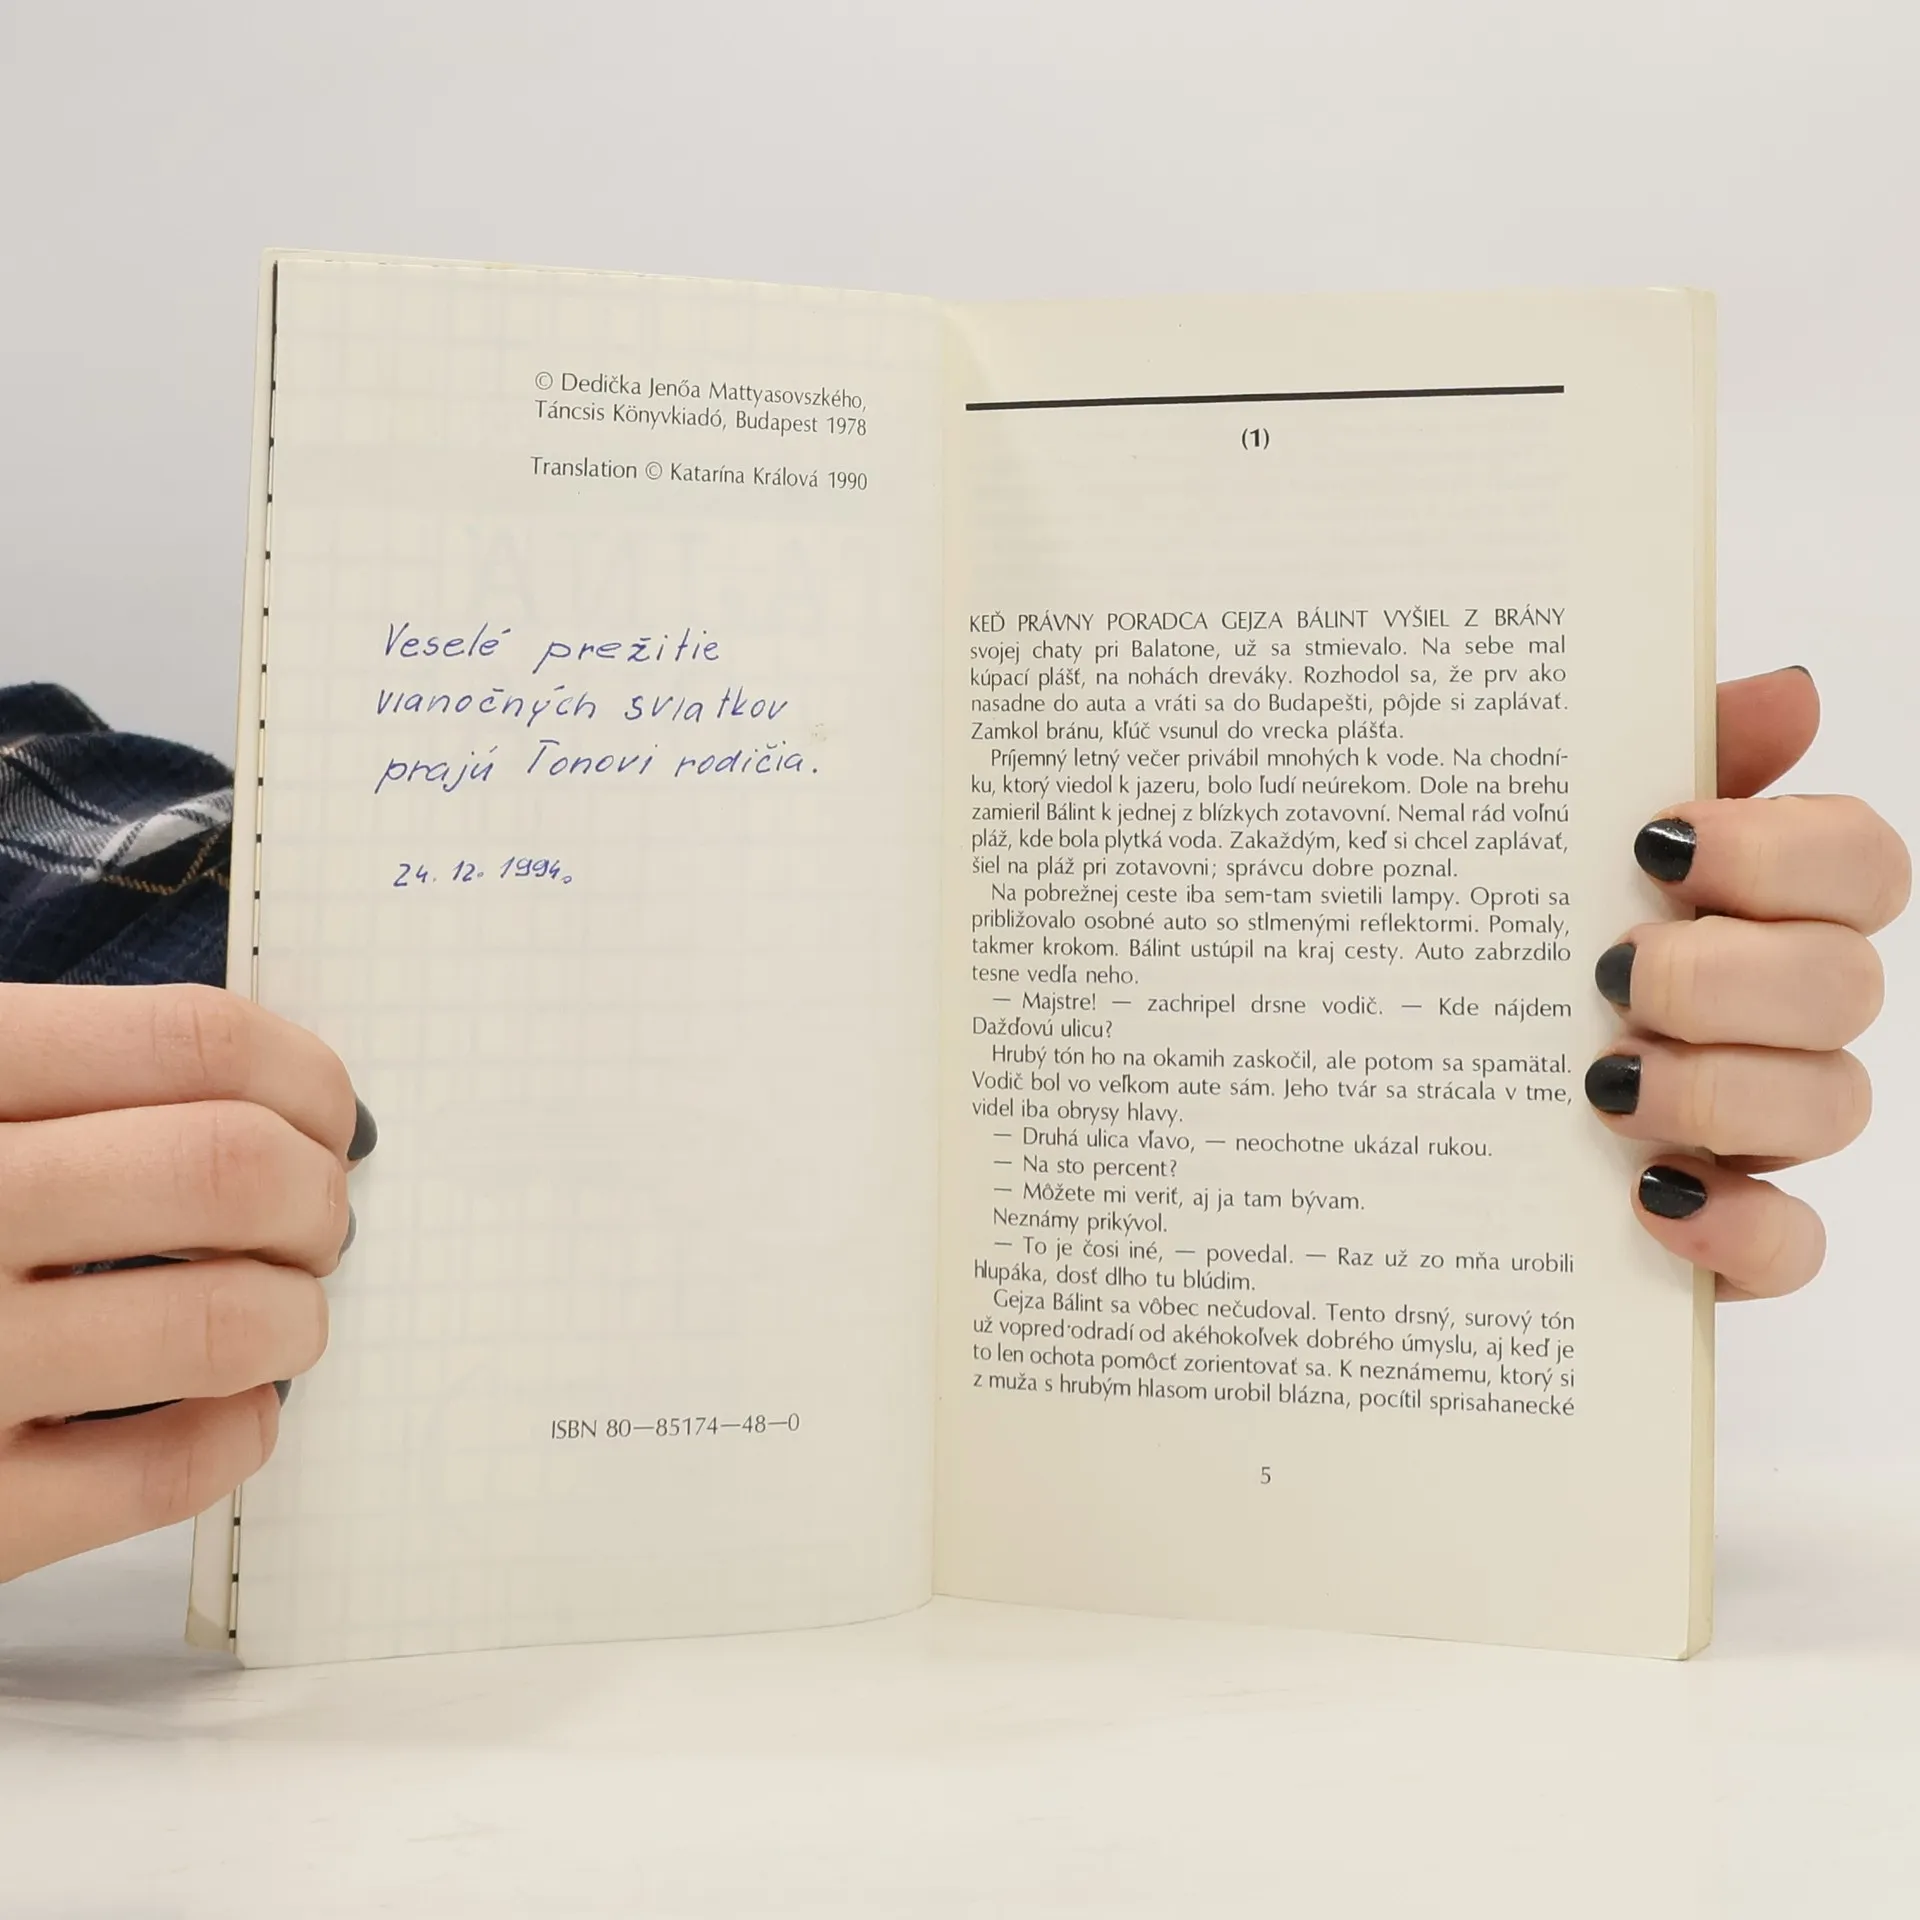 © Dedička Jenőa Mattyasovszkého,
Táncsis Könyvkiadó, Budapest 1978
Translation © Katarína Králová 1990
Veselé prežitie
vianočných sviatkov
prajú Tonovi rodičia.
24. 12. 1994.
ISBN 80—85174—48—0
(1)
KEĎ PRÁVNY PORADCA GEJZA BÁLINT VYŠIEL Z BRÁNY
svojej chaty pri Balatone, už sa stmievalo. Na sebe mal
kúpací plášť, na nohách dreváky. Rozhodol sa, že prv ako
nasadne do auta a vráti sa do Budapešti, pôjde si zaplávať.
Zamkol bránu, kľúč vsunul do vrecka plášťa.
Príjemný letný večer privábil mnohých k vode. Na chodní-
ku, ktorý viedol k jazeru, bolo ľudí neúrekom. Dole na brehu
zamieril Bálint k jednej z blízkych zotavovní. Nemal rád voľnú
pláž, kde bola plytká voda. Zakaždým, keď si chcel zaplávať,
šiel na pláž pri zotavovni; správcu dobre poznal.
Na pobrežnej ceste iba sem-tam svietili lampy. Oproti sa
približovalo osobné auto so stlmenými reflektormi. Pomaly,
takmer krokom. Bálint ustúpil na kraj cesty. Auto zabrzdilo
tesne vedľa neho.
— Majstre! — zachripel drsne vodič. — Kde nájdem
Dažďovú ulicu?
Hrubý tón ho na okamih zaskočil, ale potom sa spamätal.
Vodič bol vo veľkom aute sám. Jeho tvár sa strácala v tme,
videl iba obrysy hlavy.
— Druhá ulica vľavo, — neochotne ukázal rukou.
— Na sto percent?
— Môžete mi veriť, aj ja tam bývam.
Neznámy prikývol.
— To je čosi iné, — povedal. — Raz už zo mňa urobili
hlupáka, dosť dlho tu blúdim.
Gejza Bálint sa vôbec nečudoval. Tento drsný, surový tón
už vopred odradí od akéhokoľvek dobrého úmyslu, aj keď je
to len ochota pomôcť zorientovať sa. K neznámemu, ktorý si
z muža s hrubým hlasom urobil blázna, pocítil sprisahanecké
5